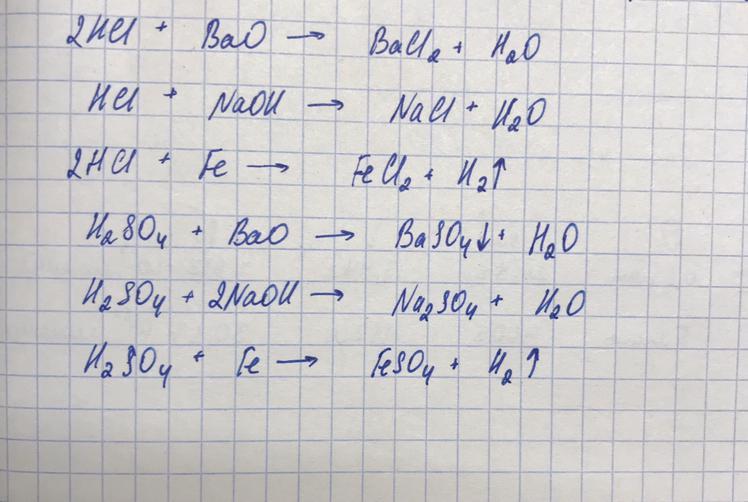 2HCl + BaO → BaCl₂ + H₂O
HCl + NaOH → NaCl + H₂O
2HCl + Fe → FeCl₂ + H₂↑
H₂SO₄ + BaO → BaSO₄↓ + H₂O
H₂SO₄ + 2NaOH → Na₂SO₄ + H₂O
H₂SO₄ + Fe → FeSO₄ + H₂↑